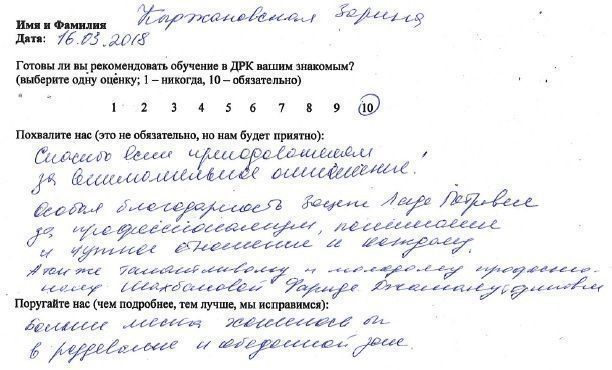 Имя и Фамилия Кыржановская Зарина
Дата: 16.03.2018
Готовы ли вы рекомендовать обучение в ДРК вашим знакомым?
(выберите одну оценку; 1 – никогда, 10 – обязательно)
1 2 3 4 5 6 7 8 9 10
Похвалите нас (это не обязательно, но нам будет приятно):
Спасибо всем преподавателям
за внимательное отношение!
Особая благодарность Зацепе Лиде Петровне
за профессионализм, понимание
и чуткое отношение к каждому.
А также талантливому и молодому
Поругайте нас (чем подробнее, тем лучше, мы исправимся):
Больше места хотелось бы
в раздевалке и обеденной зоне.